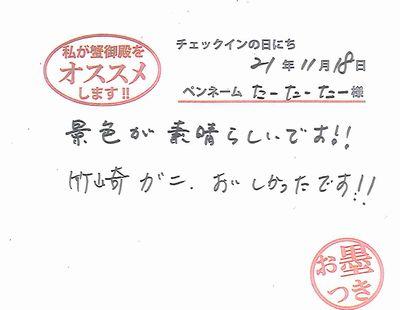 私が蟹御殿を
オススメ
します!!
チェックインの日にち
21年11月18日
ペンネーム たーたーたー様
景色が素晴らしいです!!
竹崎ガニ、おいしかったです!!
お墨
つき